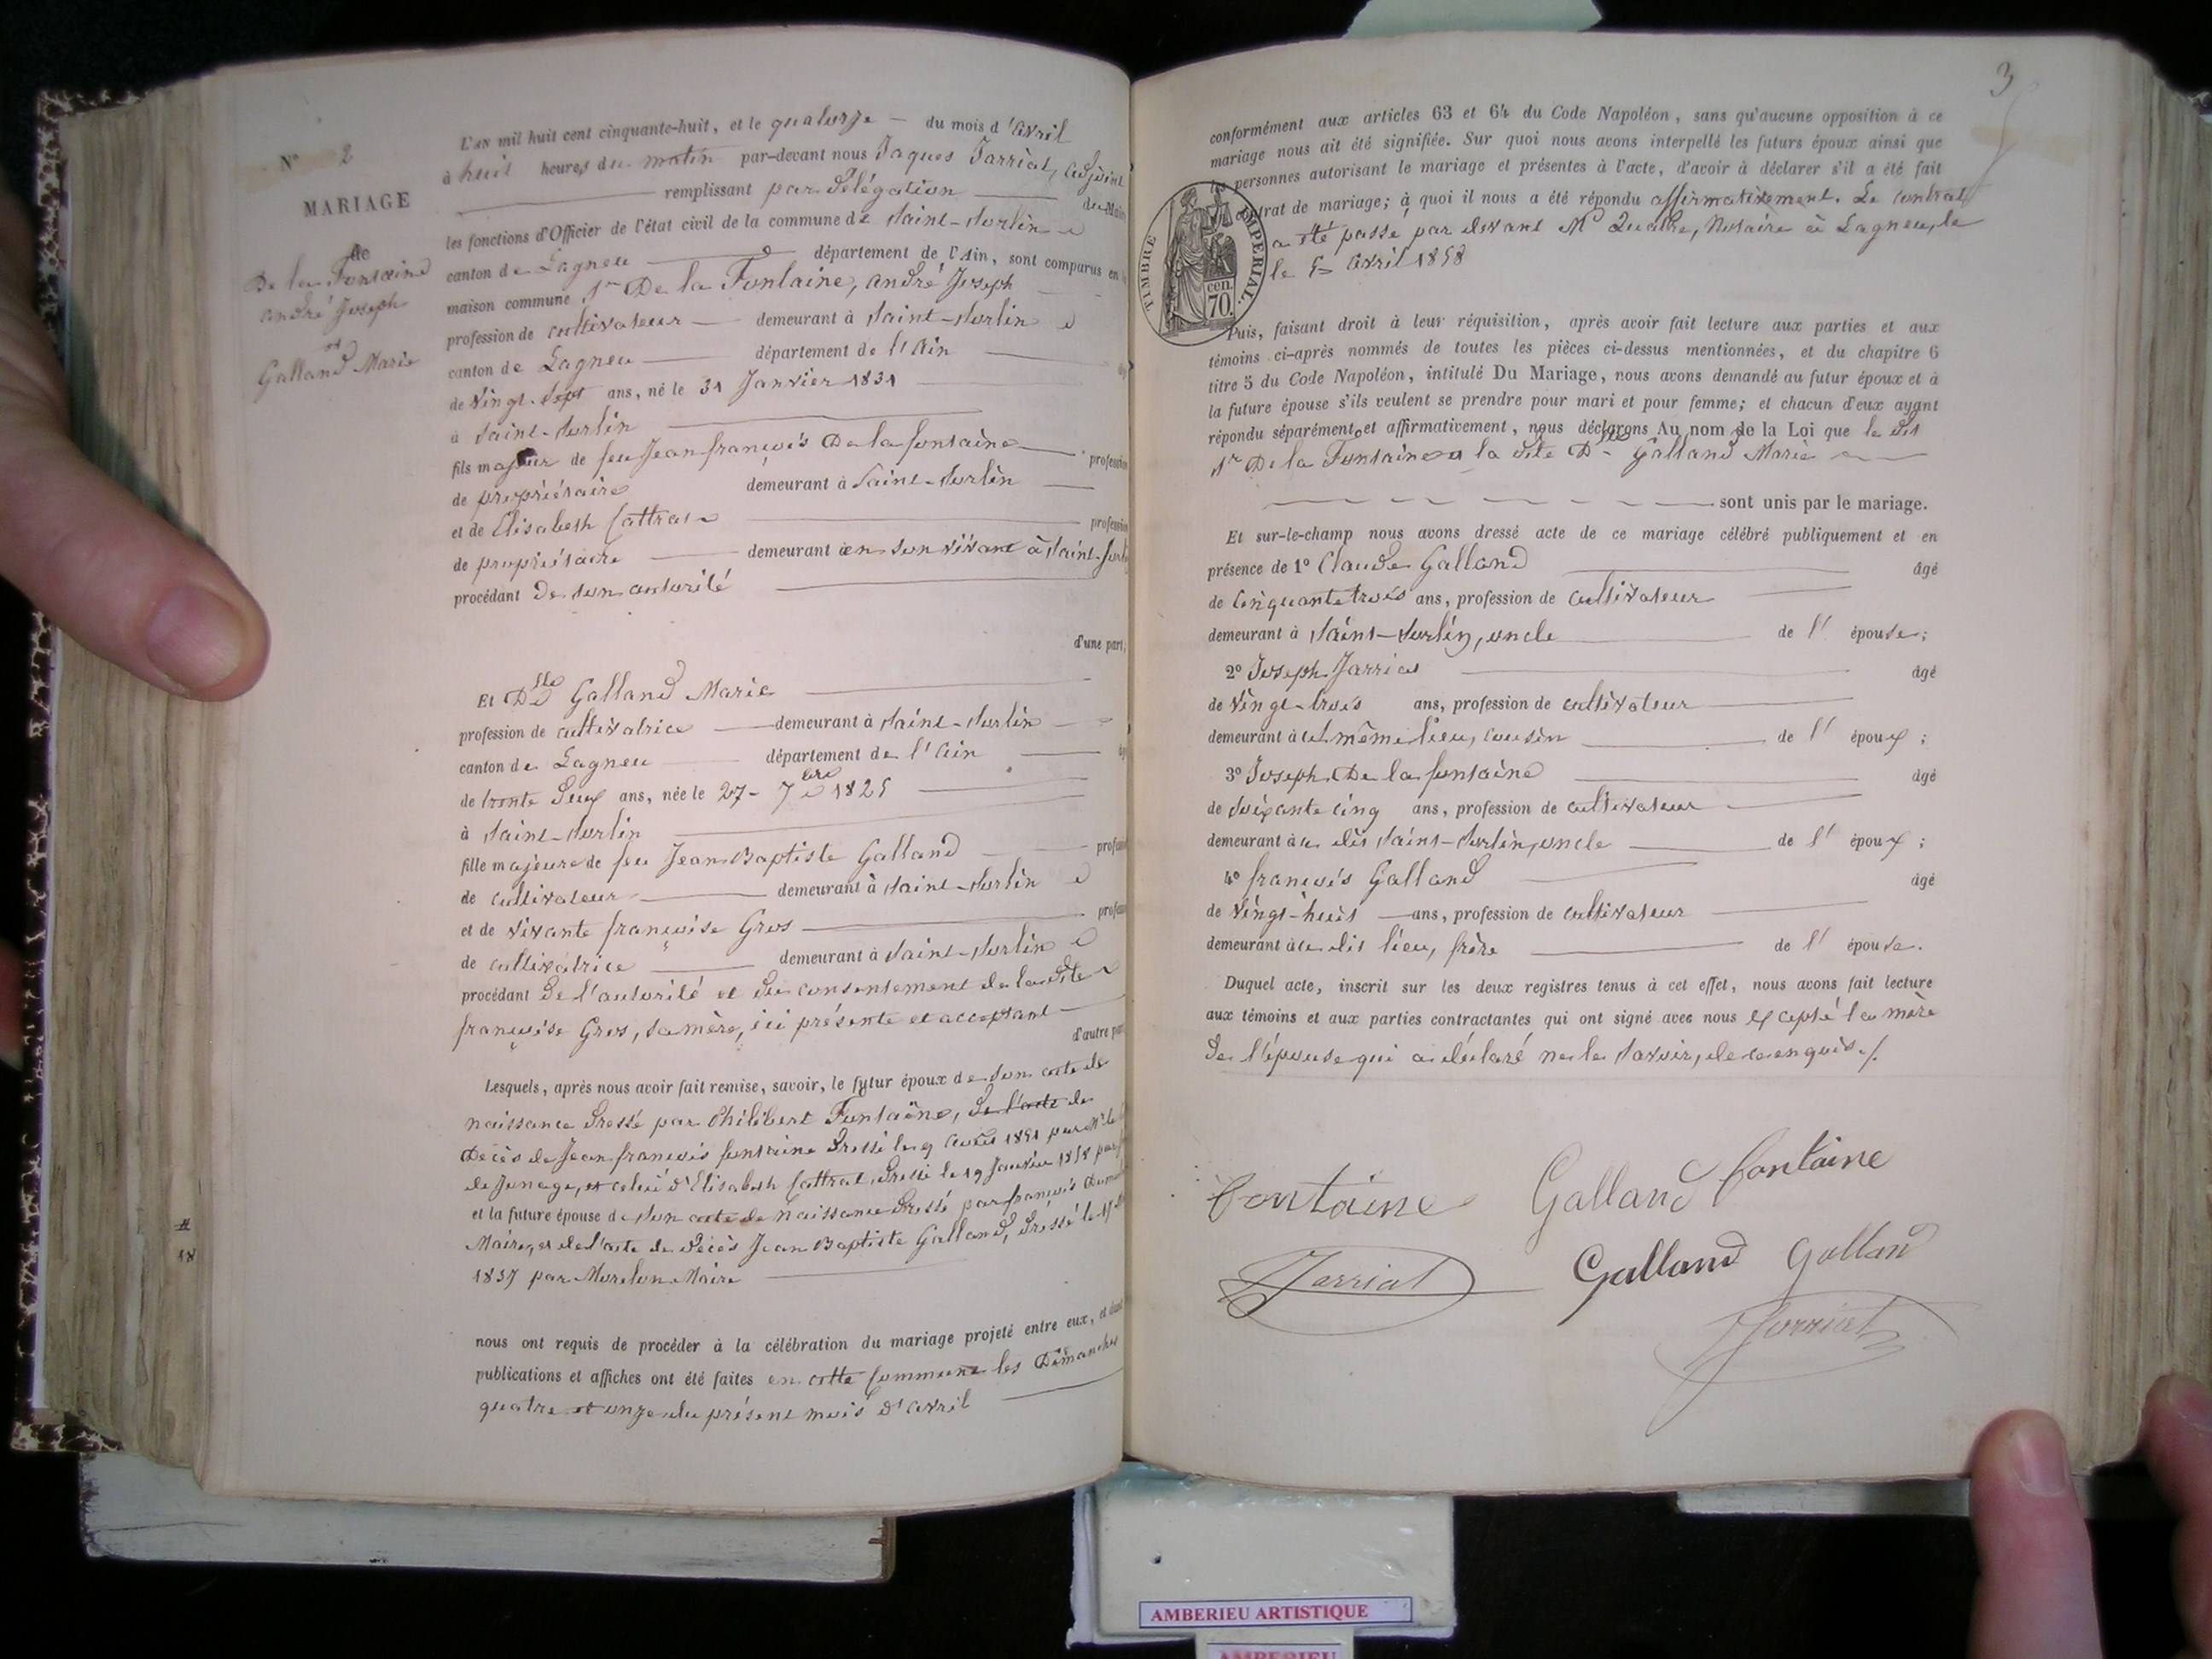 N° 2
MARIAGE
de
De la Fontaine
andré Joseph
et
Galland Marie
L'an mil huit cent cinquante-huit, et le quatorze du mois d'avril
à huit heures du matin par-devant nous Jaques Jarriat, adjoint
remplissant par délégation du Maire
les fonctions d'Officier de l'état civil de la commune de Saint-Sorlin
canton de Lagneu département de l'Ain, sont comparus en la
maison commune Sr De la Fontaine, andré Joseph
profession de cultivateur demeurant à Saint-Sorlin
canton de Lagneu département de l'Ain
de Vingt-Sept ans, né le 31 Janvier 1831
à Saint-Sorlin
fils majeur de feu Jean françois De la fontaine profession
de propriétaire demeurant à Saint-Sorlin
et de Elisabeth Cottrat profession
de propriétaire demeurant en son vivant à Saint-Sorlin
procédant De son autorité
d'une part;
Et Dlle Galland Marie
profession de cultivatrice demeurant à Saint-Sorlin
canton de Lagneu département de l'Ain
de trente Deux ans, née le 27 7bre 1825
à Saint-Sorlin
fille majeure de feu Jean Baptiste Galland profession
de cultivateur demeurant à Saint-Sorlin
et de vivante françoise Gros profession
de cultivatrice demeurant à Saint-Sorlin
procédant De l'autorité et du consentement de la dite
françoise Gros, sa mère, ici présente et acceptant
d'autre part
Lesquels, après nous avoir fait remise, savoir, le futur époux de son acte de
naissance Dressé par Philibert Fontaine, De l'acte de
Décès de Jean françois fontaine Dressé le 9 1851 par Mr
de Jonage, et celui d'Elisabeth Cottrat, Dressé le 19 Janvier 1858 par
et la future épouse de son acte de naissance Dressé par françois
Maire, et de l'acte de décès Jean Baptiste Galland, Dressé le
1837 par Morelon Maire
nous ont requis de procéder à la célébration du mariage projeté entre eux, et dont
publications et affiches ont été faites en cette Commune les Dimanches
quatre et onze du présent mois d'avril
3
conformément aux articles 63 et 64 du Code Napoléon, sans qu'aucune opposition à ce
mariage nous ait été signifiée. Sur quoi nous avons interpellé les futurs époux ainsi que
les personnes autorisant le mariage et présentes à l'acte, d'avoir à déclarer s'il a été fait
contrat de mariage; à quoi il nous a été répondu affirmativement. Le contrat
a été passé par devant Me Notaire à Lagneu, le
le 5 avril 1858
TIMBRE IMPÉRIAL.
cen.
70.
Puis, faisant droit à leur réquisition, après avoir fait lecture aux parties et aux
témoins ci-après nommés de toutes les pièces ci-dessus mentionnées, et du chapitre 6
titre 5 du Code Napoléon, intitulé Du Mariage, nous avons demandé au futur époux et à
la future épouse s'ils veulent se prendre pour mari et pour femme; et chacun d'eux ayant
répondu séparément et affirmativement, nous déclarons Au nom de la Loi que le dit
Sr De la Fontaine et la dite Dlle Galland Marie
sont unis par le mariage.
Et sur-le-champ nous avons dressé acte de ce mariage célébré publiquement et en
présence de 1° Claude Galland âgé
de Cinquante trois ans, profession de cultivateur
demeurant à Saint-Sorlin, oncle de l'épouse;
2° Joseph Jarriat âgé
de vingt-trois ans, profession de cultivateur
demeurant à cet même lieu, cousin de l'époux;
3° Joseph De la fontaine âgé
de Soixante cinq ans, profession de cultivateur
demeurant à ce dit Saint-Sorlin, oncle de l'époux;
4° françois Galland âgé
de Vingt-huit ans, profession de cultivateur
demeurant à ce dit lieu, frère de l'épouse.
Duquel acte, inscrit sur les deux registres tenus à cet effet, nous avons fait lecture
aux témoins et aux parties contractantes qui ont signé avec nous excepté la mère
De l'épouse qui a déclaré ne le savoir, de ce enquis./.
Fontaine Galland Fontaine
Jarriat Galland Galland
Jarriat
AMBERIEU ARTISTIQUE
AMBERIEU